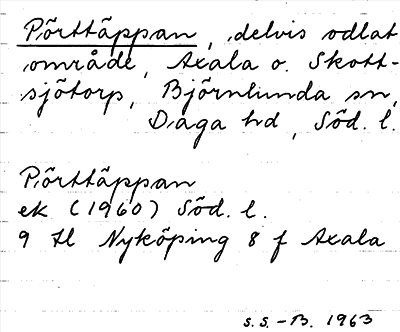 Pörttäppan, delvis odlat
område, Axala o. Skott-
sjötorp, Björnlunda sn,
Daga hd, Söd. l.
Pörttäppan
ek (1960) Söd. l.
9 H Nyköping 8 f Axala
S.S.-B. 1963